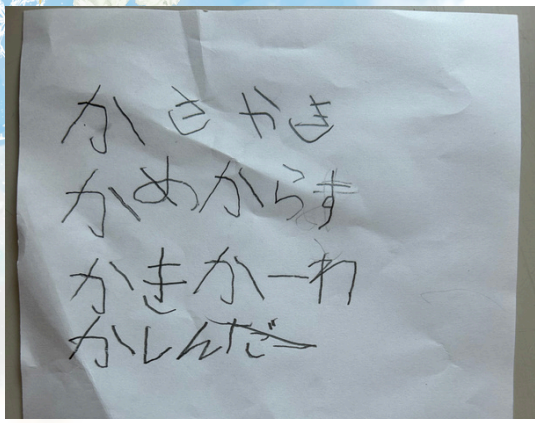 かきかき
かめからす
かきかーわ
かしんだー